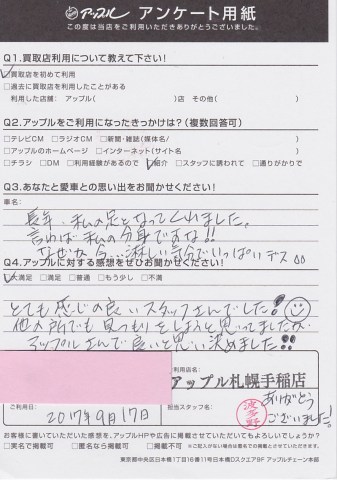 アップル アンケート用紙
この度は当店をご利用いただきありがとうございました。
Q1.買取店利用について教えて下さい!
□買取店を初めて利用
□過去に買取店を利用したことがある
利用した店舗: アップル( )店 その他( )
Q2.アップルをご利用になったきっかけは?(複数回答可)
□テレビCM □ラジオCM □新聞・雑誌(媒体名/ )
□アップルのホームページ □インターネット(サイト名 )
□チラシ □DM □利用経験があるので □紹介 □スタッフに誘われて □通りがかりで
Q3.あなたと愛車との思い出をお聞かせください!
車名:
長年、私の足となってくれました。
言わば私の分身ですな!!
なぜか今…淋しい気分でいっぱいデス
Q4.アップルに対する感想をぜひお聞かせください!
□大満足 □満足 □普通 □もう少し □不満
とても感じの良いスタッフさんでした!
他の所でも見つもりをしようと思ってましたが、
アップルさんで良いと思い決めました!!
アップル札幌手稲店
ご利用日
2017年9月17日
担当スタッフ名:
波多野
ありがとうございました!
お客様に書いていただいた感想を、アップルHPや広告に掲載させていただいてもよろしいでしょうか?
□実名で掲載可 □匿名なら掲載可 □掲載不可
※ご記入がない場合は匿名での掲載とさせていただきます。
東京都中央区日本橋1丁目16番11号日本橋DスクエアBF アップルチェーン本部